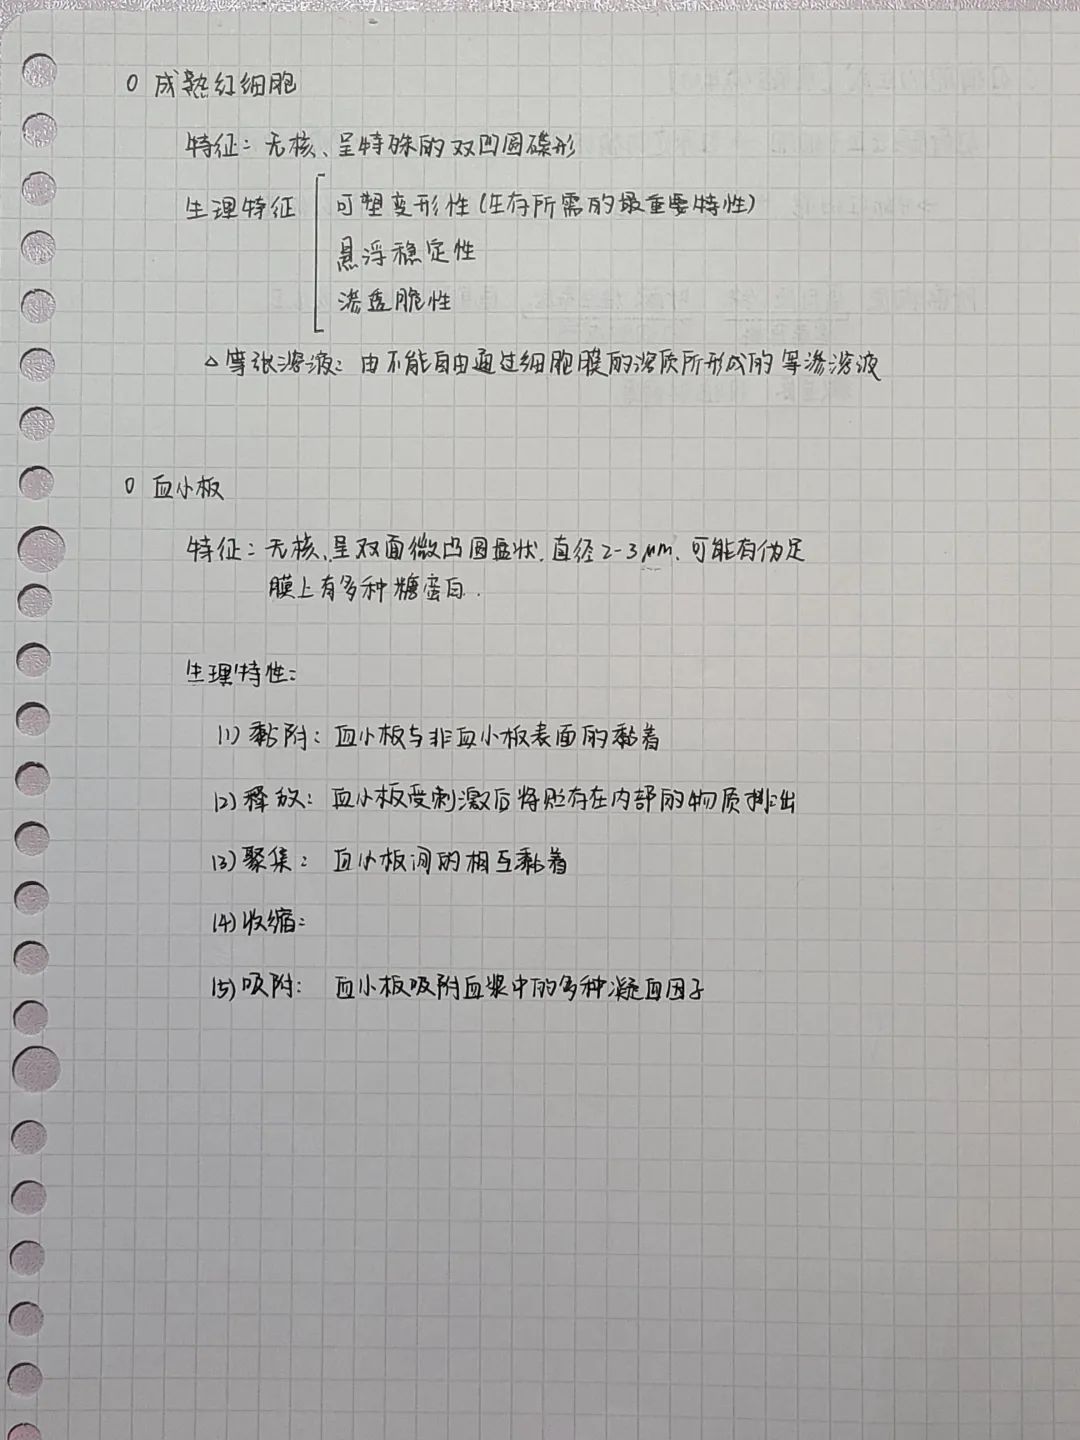 ○ 成熟红细胞
特征：无核、呈特殊的双凹圆碟形
生理特征
可塑变形性（生存所需的最重要特性）
悬浮稳定性
渗透脆性
△等张溶液：由不能自由通过细胞膜的溶质所形成的等渗溶液
○ 血小板
特征：无核、呈双面微凸圆盘状、直径2-3μm、可能有伪足
膜上有多种糖蛋白.
生理特性：
(1) 黏附：血小板与非血小板表面的黏着
(2) 释放：血小板受刺激后将贮存在内部的物质排出
(3) 聚集：血小板间的相互黏着
(4) 收缩：
(5) 吸附：血小板吸附血浆中的多种凝血因子